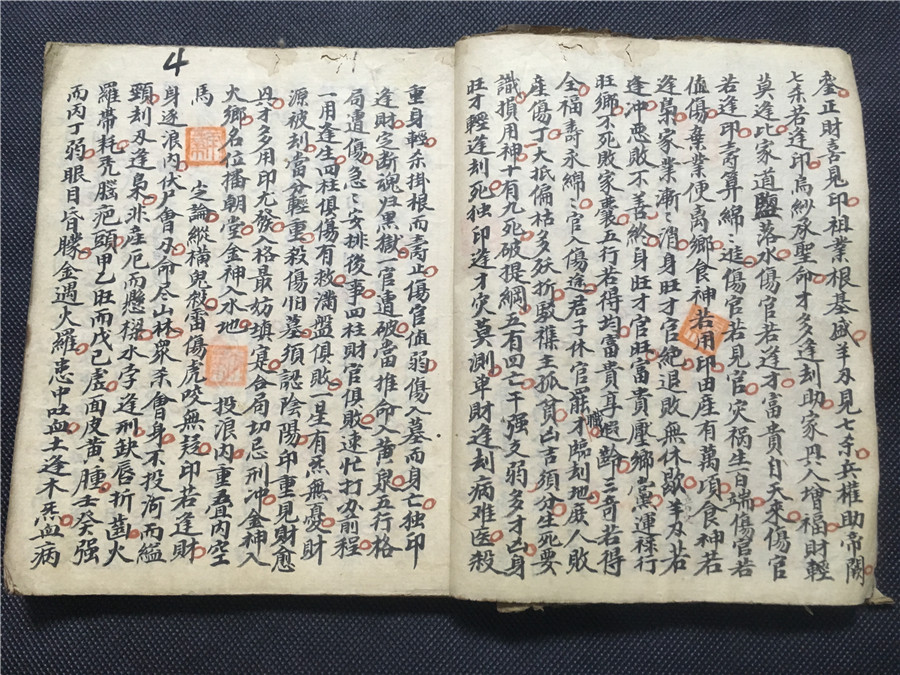 奎正財喜見印祖業根基盛羊刃見七杀兵權助帝闕
七杀若逢印烏紗承聖命才多逢刦助家興人增福財輕
莫逢比家道盬落水傷官若逢才富貴自天來傷官
若逢印壽算綿々進傷官若見官灾禍生百端傷官若
值傷棄業便离鄉食神若用印田庄有萬項食神若
逢梟家業漸々消身旺才官絶退敗無休歇羊刃若
逢冲悪敗不善終身旺才官旺富貴壓鄉黨運祿行
旺鄉不死敗家囊五行若得均富貴享遐齡三奇若得
全福壽永綿々官入傷途君子休官庶職才臨刦地庶人敗
產傷丁大抵偏枯多夭折駁襍主孤貧凶吉須分生死要
識損用神十有九死破提綱五有四亡干强支弱多才凶身
旺才輕逢刦死独印逢才灾莫測单財逢刦病难医殺
4
重身輕杀掛根而壽止傷官值弱傷入墓而身亡独印
逢財定断魂归黑獄一官遭破當推命入黄泉五行格
局遭傷急々安排後事四柱財官俱敗速忙打办前程
一用逢生四柱俱傷有救满盤俱敗一星有炁無憂財
源被刦當分輕重殺傷旧墓須認陰陽印重見財愈
興才多用印尢發入格最妨填寔合局切忌刑冲金神入
火鄉名位播朝堂金神入水地 投浪内重疊内空
馬 定論縱橫鬼殺雷傷虎咬無疑印若逢財
身逐浪内伏尸會刃命尽山林衆杀會身不投河而縊
頸刦刃逢梟非產厄而懸樑水孛逢刑缺唇折齒火
羅帶耗秃腦疤頭甲乙旺而戊己虚面皮黄腫壬癸强
而丙丁弱眼目昏朦金遇火羅患中吐血土逢木炁血病